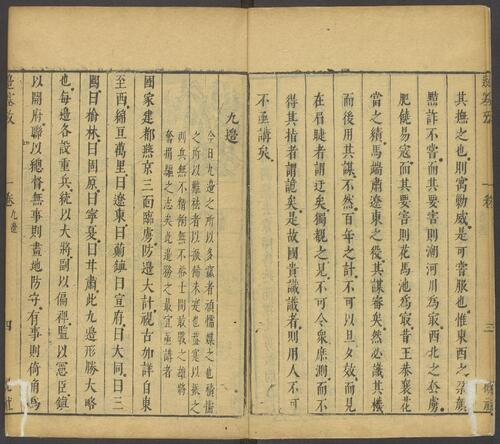 其撫之也則寓勦威是可嘗服也惟東西之
黠詐不嘗而其要害則潮河川爲最西北之套虜
肥饒易寇而其要害則花馬池爲最昔王恭襄花
當之績馬端肅遼東之役其謀審矣然必識其機
而後用其謀不然百年之計不可以旦夕效而見
在眉睫者謂迂矣獨覩之見不可令衆庶測而不
得其指者謂詭矣是故國貴識識者則用人不可
不亟講矣
九邊
今日九邊之所以多羸者頑懦媒之也驕衝
之所以難祛者以激歸未定也蓋寔以振之
則兵無不精餉無不裕士閒敢戰之雄將
奮捐軀之志矣此邊務之最宜重講者
國家建都燕京三面臨虜防邊大計視古加詳自東
至西綿亘萬里曰遼東曰薊鎮曰宣府曰大同曰三
關曰榆林曰固原曰寧夏曰甘肅此九邊形勝大略
也每邊各設重兵統以大將副以偏裨監以憲臣鎮
以開府聯以總督無事則畫地防守有事則掎角爲
卷 九邊
四